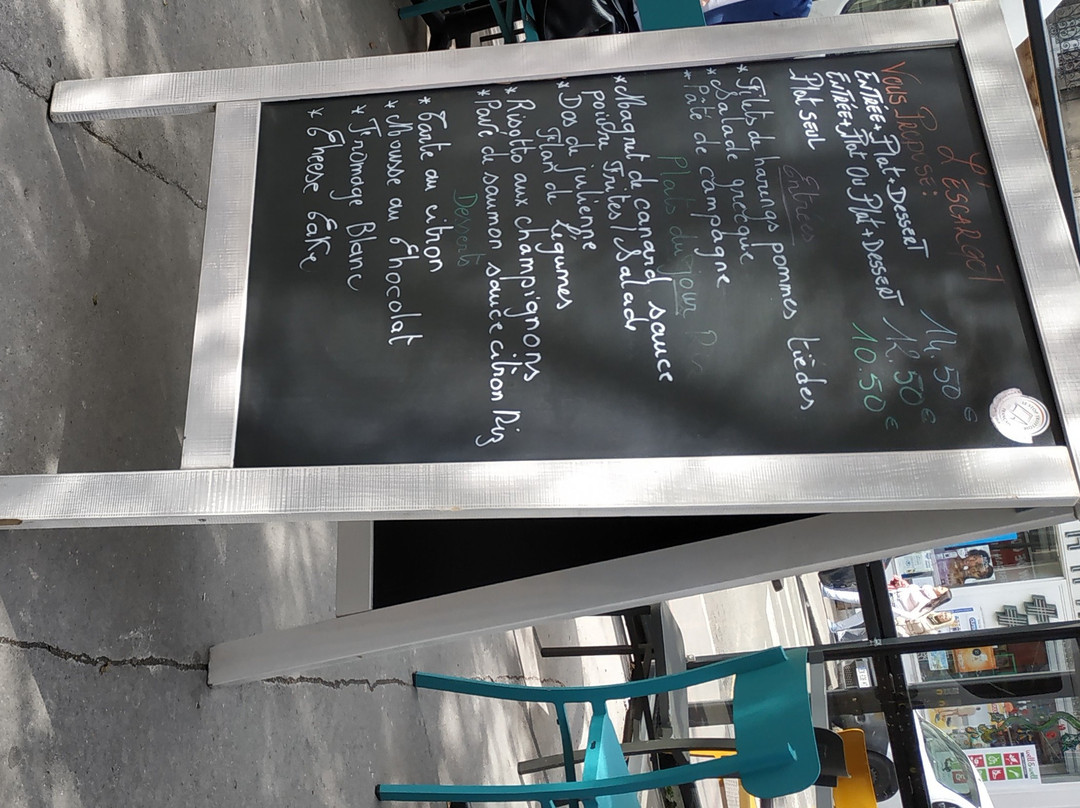 L'ESCARGOT
Vous Propose:
ENTREE+Plat+DESSERT 14.50 €
ENTREE+Plat Ou Plat+DESSERT 12.50 €
Plat SEUL 10.50 €
Entrées
*Filets de harengs pommes tièdes
*Salade grecque
*Pâté de campagne
Plats du jour
*Magret de canard sauce
poivre Frites/Salade
*Dos de julienne
Flan de légumes
*Risotto aux champignons
*Pavé de saumon sauce citron Riz
Desserts
*Tarte au citron
*Mousse au Chocolat
*Fromage Blanc
*Cheese Cake